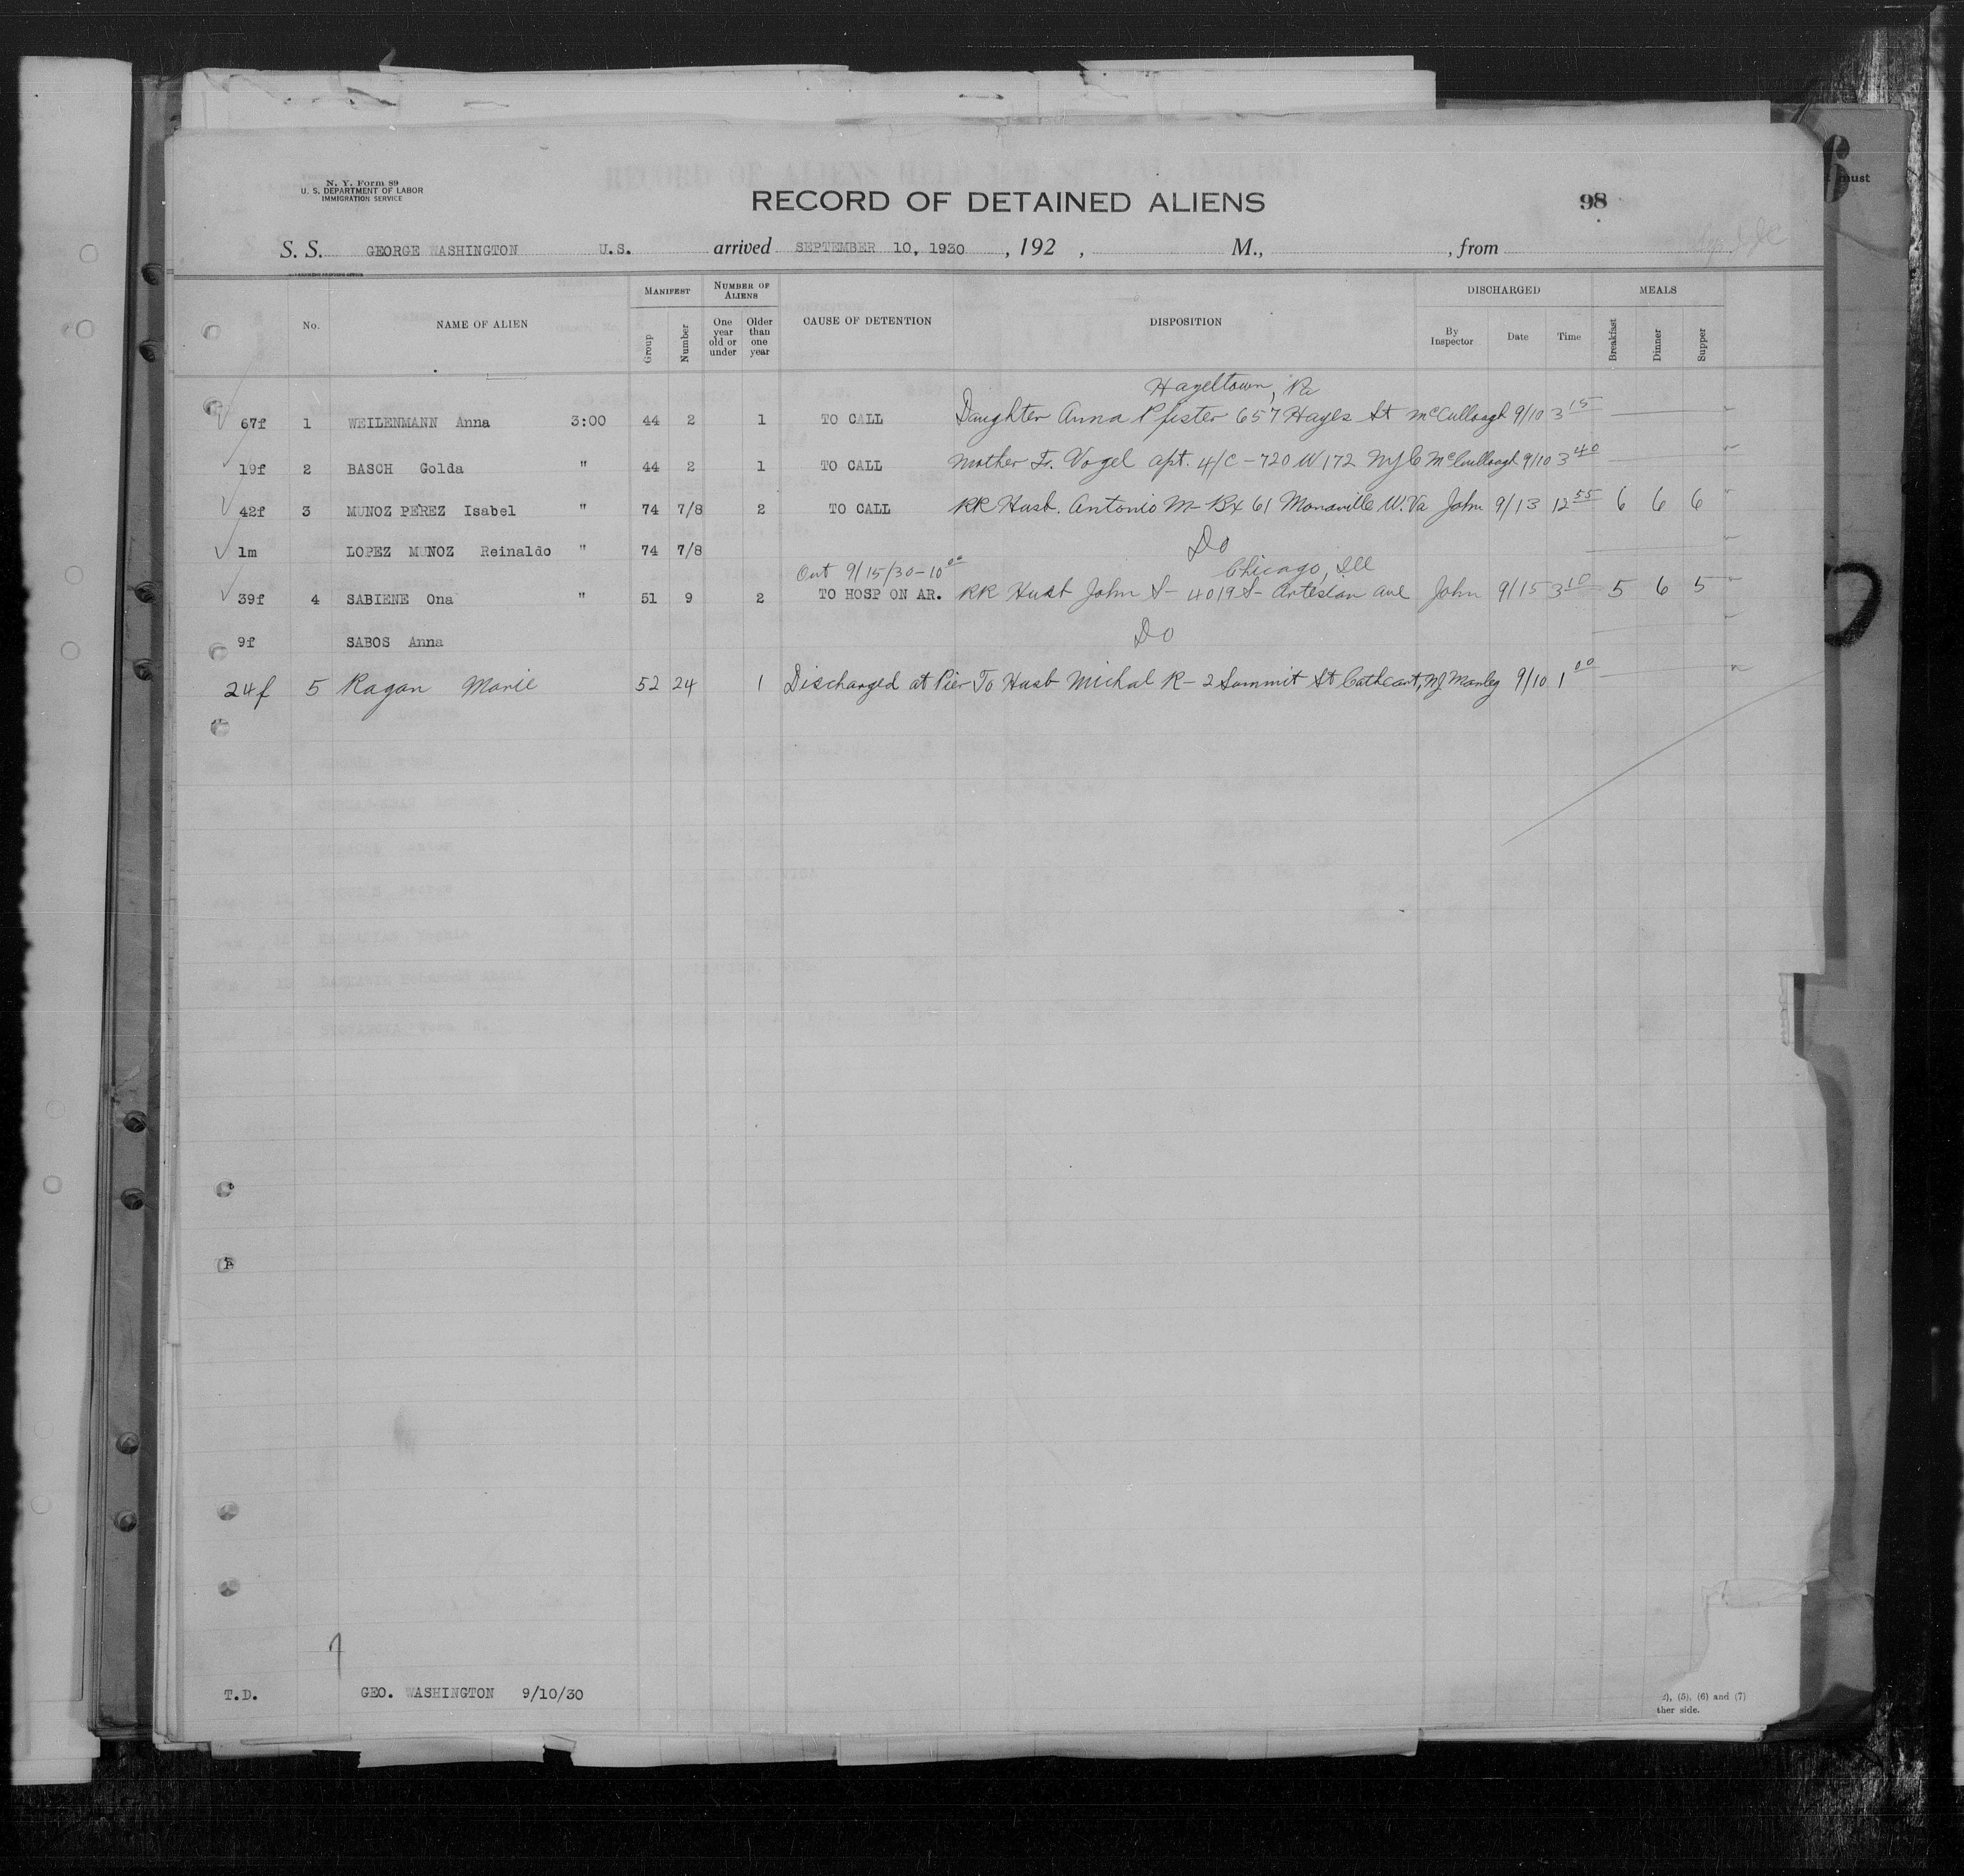 N. Y. Form 89
U. S. DEPARTMENT OF LABOR
IMMIGRATION SERVICE
RECORD OF DETAINED ALIENS
98
must
S. S. GEORGE WASHINGTON U.S. arrived SEPTEMBER 10, 1930 , 192 , M., , from
No. NAME OF ALIEN MANIFEST Group Number NUMBER OF ALIENS One year old or under Older than one year CAUSE OF DETENTION DISPOSITION DISCHARGED By Inspector Date Time MEALS Breakfast Dinner Supper
Hazeltown, Pa
67f 1 WEILENMANN Anna 3:00 44 2 1 TO CALL Daughter Anna Pfister 657 Hayes St McCullough 9/10 3 15
19f 2 BASCH Golda " 44 2 1 TO CALL Mother Fr. Vogel apt. 4/C - 720 W 172 NYC McCullough 9/10 3 40
42f 3 MUNOZ PEREZ Isabel " 74 7/8 2 TO CALL RR Husb. Antonio M - Bx 61 Monaville W. Va John 9/13 12 55 6 6 6
1m LOPEZ MUNOZ Reinaldo " 74 7/8 Do
Out 9/15/30 - 10 00 Chicago, Ill
39f 4 SABIENE Ona " 51 9 2 TO HOSP ON AR. RR Husb John S - 4019 S - Artesian Ave John 9/15 3 10 5 6 5
9f SABOS Anna Do
24f 5 Ragan Marie 52 24 1 Discharged at Pier To Husb Michal R - 2 Summit St NJ Manley 9/10 1 00
T.D. GEO. WASHINGTON 9/10/30
), (5), (6) and (7)
ther side.